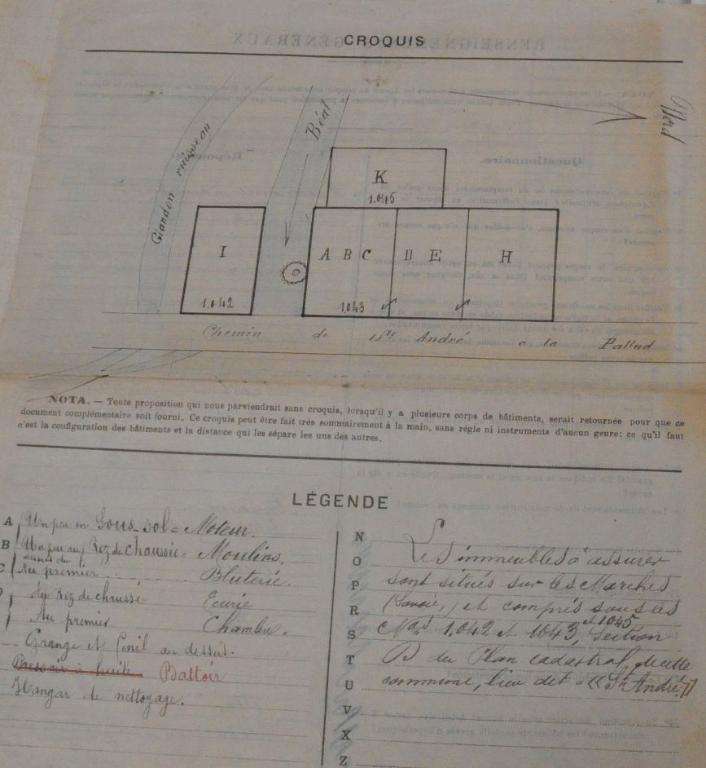 CROQUIS
Nord
Glandon ruisseau
Béal
K
1.045
I
A B C
D E
H
1.042
1.043
Chemin de St André à la Pallud
NOTA. — Toute proposition qui nous parviendrait sans croquis, lorsqu'il y a plusieurs corps de bâtiments, serait retournée pour que ce
document complémentaire soit fourni. Ce croquis peut être fait très sommairement à la main, sans règle ni instruments d'aucun genre: ce qu'il faut
c'est la configuration des bâtiments et la distance qui les sépare les uns des autres.
LÉGENDE
A Un peu en Sous-sol = Moteur.
B Un peu au Rez de chaussée = Moulins.
C Au premier Bluterie.
Au Rez de chaussée Ecurie
Au premier Chambre.
Grange et Fenil au dessus.
Pressoir à huile Battoir
Hangar de nettoyage.
N
O
P
R
S
T
U
V
X
Z
Les immeubles à assurer
sont situés sur les Marches
(Savoie,) et compris sous les
Nos 1,042 et 1043, et 1045 Section
B du Plan cadastral, de cette
commune, lieu dit "St André"